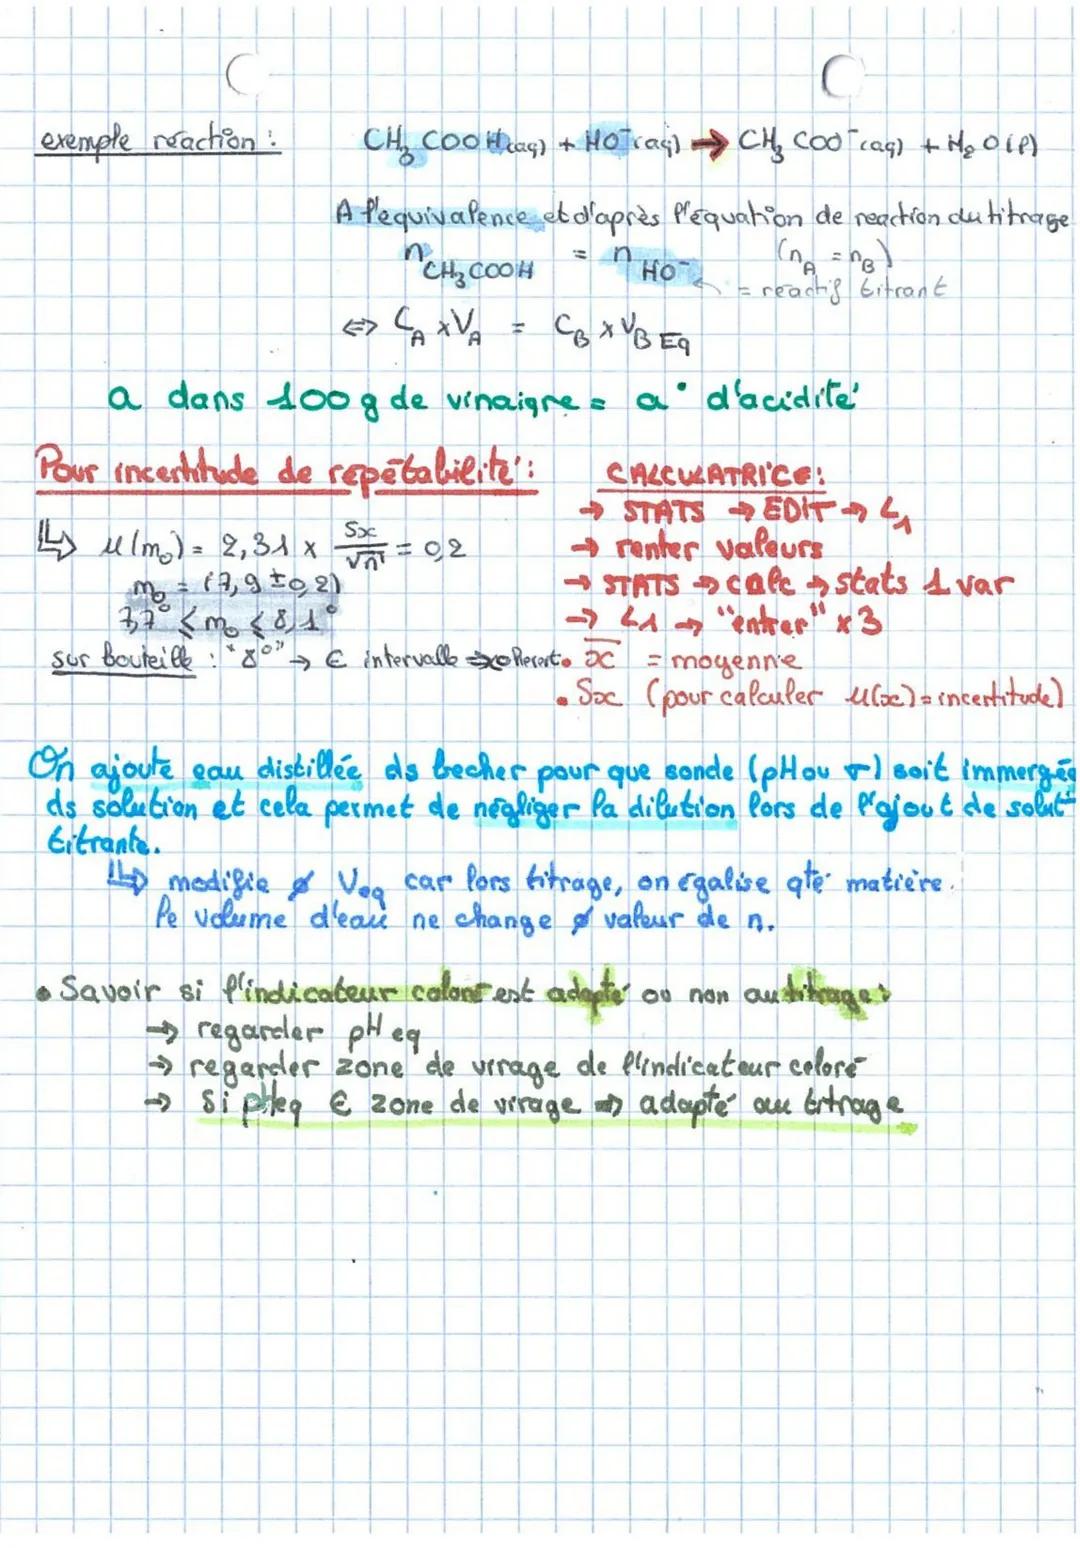 exemple réaction : CH₃COOH(aq) + HO⁻(aq) → CH₃COO⁻(aq) + H₂O(l)
A l'equivalence et d'après l'équation de reaction du titrage
n CH₃COOH = n HO⁻ (nA = nB)
= réactif titrant
⇔ CA × VA = CB × VB Eq
a dans 100g de vinaigre = a° d'acidité
Pour incertitude de répétabilité :
↳ u(m₀) = 2,31 × Sx/√n = 0,2
m₀ = (7,9 ± 0,2)
7,7° ≤ m₀ ≤ 8,1°
sur bouteille : "8°" → ∈ intervalle ⇒ coherent
CALCULATRICE :
→ STATS → EDIT → L₁
→ renter valeurs
→ STATS → calc → stats 1 var
→ L1 → "entrer" x 3
• x̄ = moyenne
• Sx (pour calculer u(x) = incertitude)
On ajoute eau distillée ds becher pour que sonde (pH ou σ) soit immergée
ds solution et cela permet de négliger la dilution lors de l'ajout de solut°
titrante.
↳ modifie ∅ Veq car lors titrage, on égalise qté matière.
le volume d'eau ne change ∅ valeur de n.
• Savoir si l'indicateur coloré est adapté ou non au titrage :
→ regarder pH eq
→ regarder zone de virage de l'indicateur coloré
→ Si pHeq ∈ zone de virage ⇒ adapté au titrage